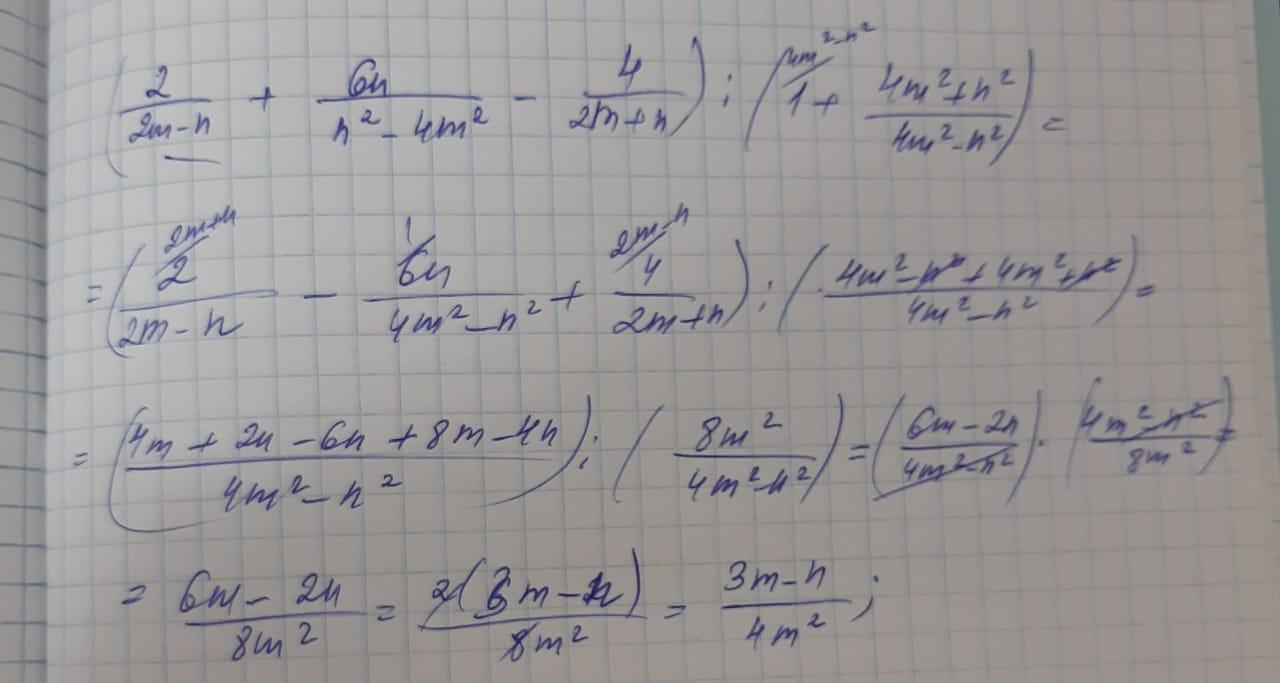 (2/(2m-n) + 6n/(n²-4m²) - 4/(2m+n)) : (1 (4m²-n²) + (4m²+n²)/(4m²-n²)) =
= (2 (2m+n)/(2m-n) - 6n (1)/(4m²-n²) + 4 (2m-n)/(2m+n)) : ((4m²-n²+4m²+n²)/(4m²-n²)) =
= ((4m+2n-6n+8m-4n)/(4m²-n²)) : (8m²/(4m²-n²)) = ((6m-2n)/(4m²-n²)) · ((4m²-n²)/8m²) =
= (6m-2n)/8m² = 2(3m-n)/8m² = (3m-n)/4m² ;